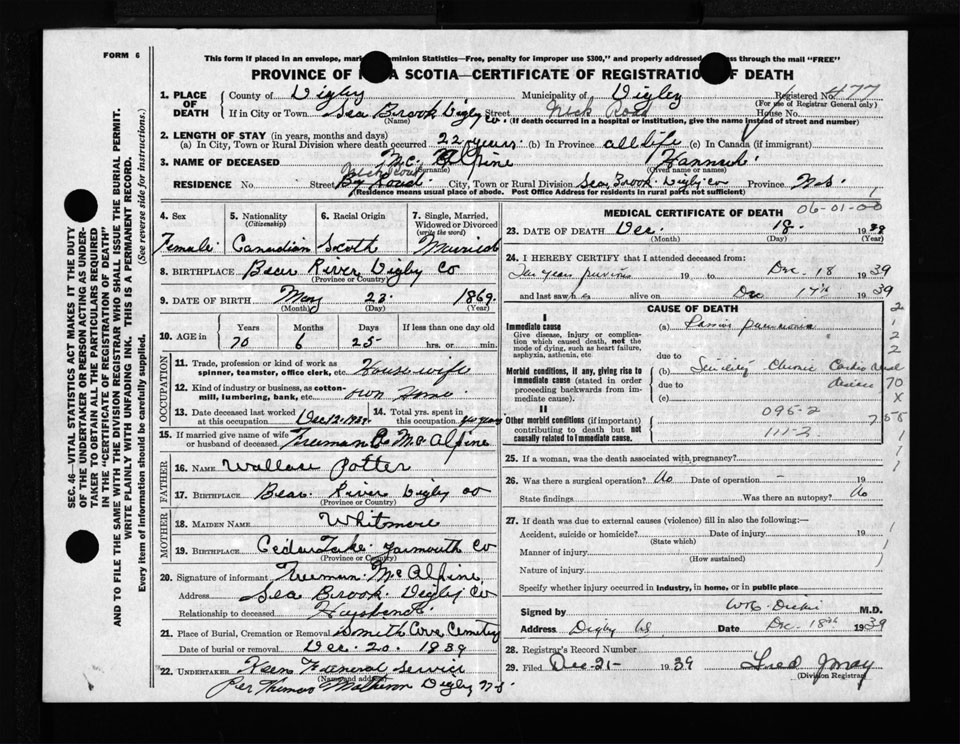 FORM 6
This form if placed in an envelope, mar Dominion Statistics—Free, penalty for improper use $300," and properly addressed pass through the mail "FREE"
PROVINCE OF A SCOTIA—CERTIFICATE OF REGISTRATION OF DEATH
1. PLACE OF DEATH County of Digby Municipality of Digby Registered No. 477
(For use of Registrar General only)
If in City or Town Sea Brook Digby Co. Street House No.
(Name) (If death occurred in a hospital or institution, give the name instead of street and number)
2. LENGTH OF STAY (in years, months and days)
(a) In City, Town or Rural Division where death occurred 22 years (b) In Province all life (c) In Canada (if immigrant)
3. NAME OF DECEASED Mc Alpine Hannah
(Surname) (Given name or names)
RESIDENCE No. Street By Road City, Town or Rural Division Sea Brook Digby Co Province N.S.
(Residence means usual place of abode. Post Office Address for Residents in rural parts not sufficient)
4. Sex Female
5. Nationality (Citizenship) Canadian
6. Racial Origin Scoth
7. Single, Married, Widowed or Divorced (write the word) Married
8. BIRTHPLACE Bear River Digby Co
(Province or Country)
9. DATE OF BIRTH May 23 1869
(Month) (Day) (Year)
10. AGE in Years Months Days If less than one day
70 6 25 hrs. or min.
OCCUPATION
11. Trade, profession or kind of work as spinner, teamster, office clerk, etc. House wife
12. Kind of industry or business, as cotton-mill, lumbering, bank, etc. own Home
13. Date deceased last worked at this occupation Dec 12
14. Total yrs. spent in this occupation years
15. If married give name of wife or husband of deceased. Freeman Mc Alpine
FATHER
16. NAME Wallace Potter
17. BIRTHPLACE Bear River Digby co
(Province or Country)
MOTHER
18. MAIDEN NAME Whitmore
19. BIRTHPLACE Cedar Lake Yarmouth Co
(Province or Country)
20. Signature of informant Freeman Mc Alpine
Address Sea Brook Digby Co
Relationship to deceased Husband
21. Place of Burial, Cremation or Removal Smith Cove Cemetery
Date of burial or removal Dec. 20. 1939
22. UNDERTAKER Funeral Service
(Name and address)
Per Thomas Digby N.S.
MEDICAL CERTIFICATE OF DEATH
06-01-00
23. DATE OF DEATH Dec. 18 19
(Month) (Day) (Year)
24. I HEREBY CERTIFY that I attended deceased from:
Ten years previous 19 to Dec. 18 1939
and last saw h alive on Dec 17th 1939
CAUSE OF DEATH
I
Immediate cause
Give disease, injury or complication which caused death, not the mode of dying, such as heart failure, asphyxia, asthenia, etc
(a) pneumonia
due to
Morbid conditions, if any, giving rise to immediate cause (stated in order proceeding backwards from immediate cause).
(b) Senility Chronic Cardio
due to disease
(c)
II
Other morbid conditions (if important) contributing to death but not causally related to immediate cause.
095-2
111-2
2
1
2
2
70
X
1
1
1
25. If a woman, was the death associated with pregnancy?
26. Was there a surgical operation? No Date of operation - 19
State findings Was there an autopsy? No
27. If death was due to external causes (violence) fill in also the following:—
Accident, suicide or homicide? Date of injury 19
(State which)
Manner of injury
(How sustained)
Nature of injury
Specify whether injury occurred in industry, in home, or in public place
Signed by M.D.
Address Digby NS Date Dec. 18th 1939
28. Registrar's Record Number
29. Filed Dec-21- 1939 Fred J May
(Division Registrar)
SEC. 46—VITAL STATISTICS ACT MAKES IT THE DUTY
OF THE UNDERTAKER OR PERSON ACTING AS UNDER-
TAKER TO OBTAIN ALL THE PARTICULARS REQUIRED
IN THE "CERTIFICATE OF REGISTRATION OF DEATH"
AND TO FILE THE SAME WITH THE DIVISION REGISTRAR WHO SHALL ISSUE THE BURIAL PERMIT.
WRITE PLAINLY WITH UNFADING INK. THIS IS A PERMANENT RECORD.
Every item of information should be carefully supplied. (See reverse side for instructions.)